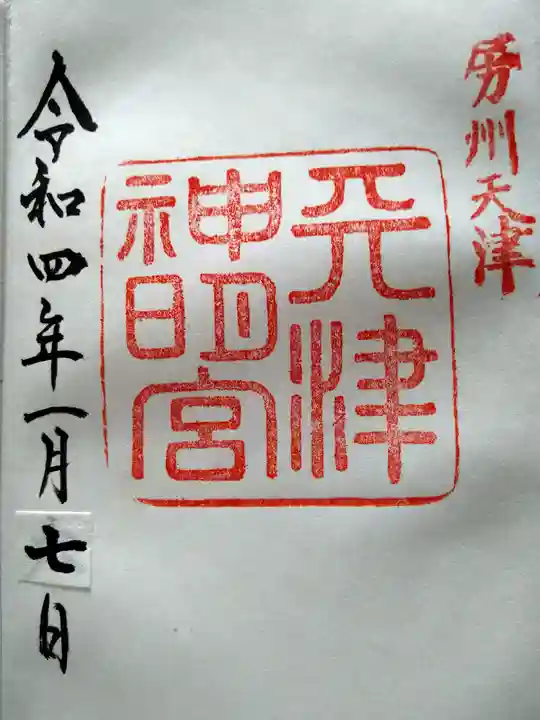 房州天津
天津
神明宮
令和四年一月七日